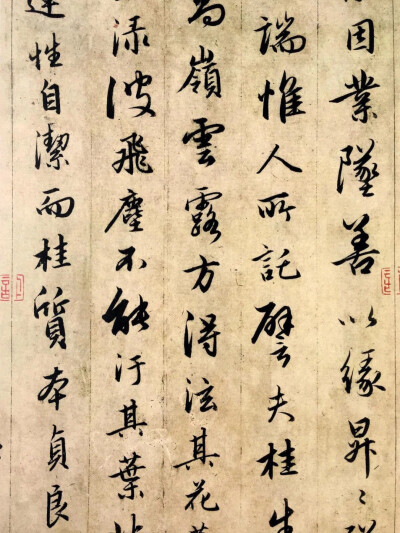 因業墜善以緣昇〻
端惟人所託譬夫桂生
高嶺雲露方得泫其花
淥波飛塵不能汙其葉
蓮性自潔而桂質本貞良